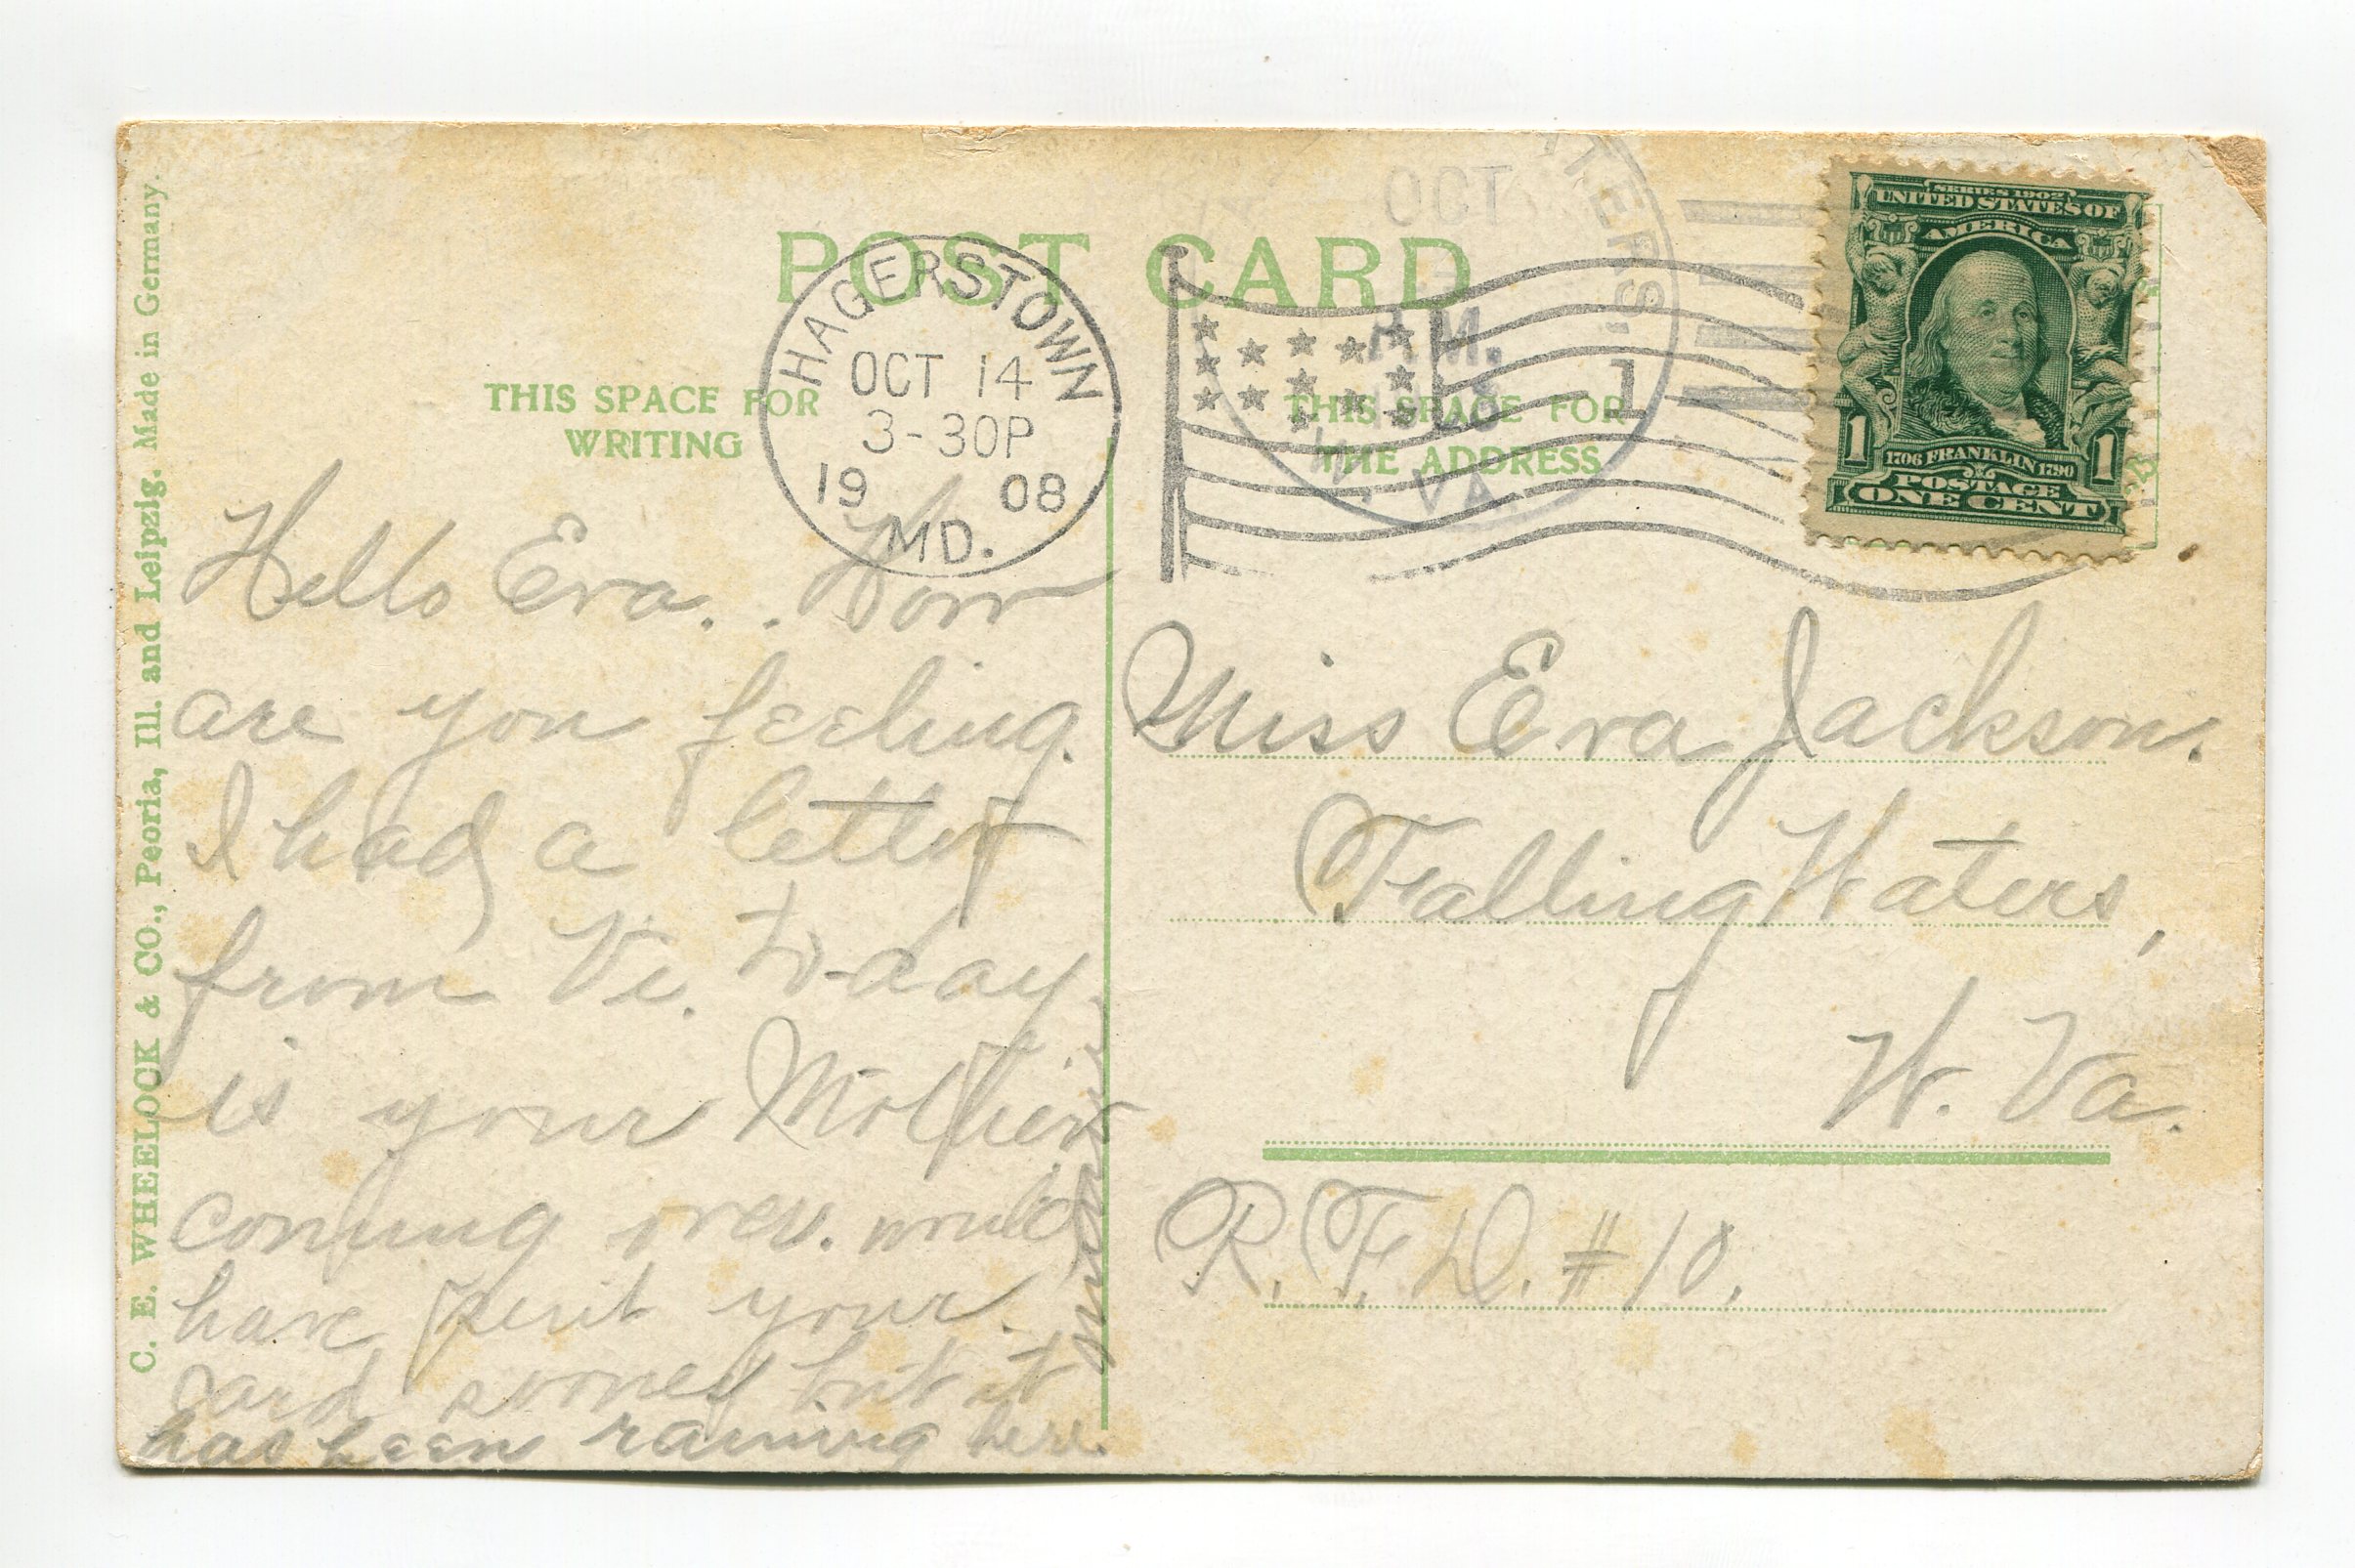 C. E. WHEELOCK & CO., Peoria, Ill. and Leipzig. Made in Germany.
POST CARD
THIS SPACE FOR
WRITING
THIS SPACE FOR
THE ADDRESS
HAGERSTOWN
OCT 14
3-30P
19 08
MD.
1
OCT
A.M.
W. VA.
SERIES 1902
UNITED STATES OF
AMERICA
1 1
1706 FRANKLIN 1790
POSTAGE
ONE CENT
Hello Eva.. How
are you feeling.
I had a letter
from Vi. to-day.
is your Mother
coming over. would
have sent your
card sooner but it
has been raining here.
Miss Eva Jackson.
Falling Waters,
W. Va.
R. F. D. #10.